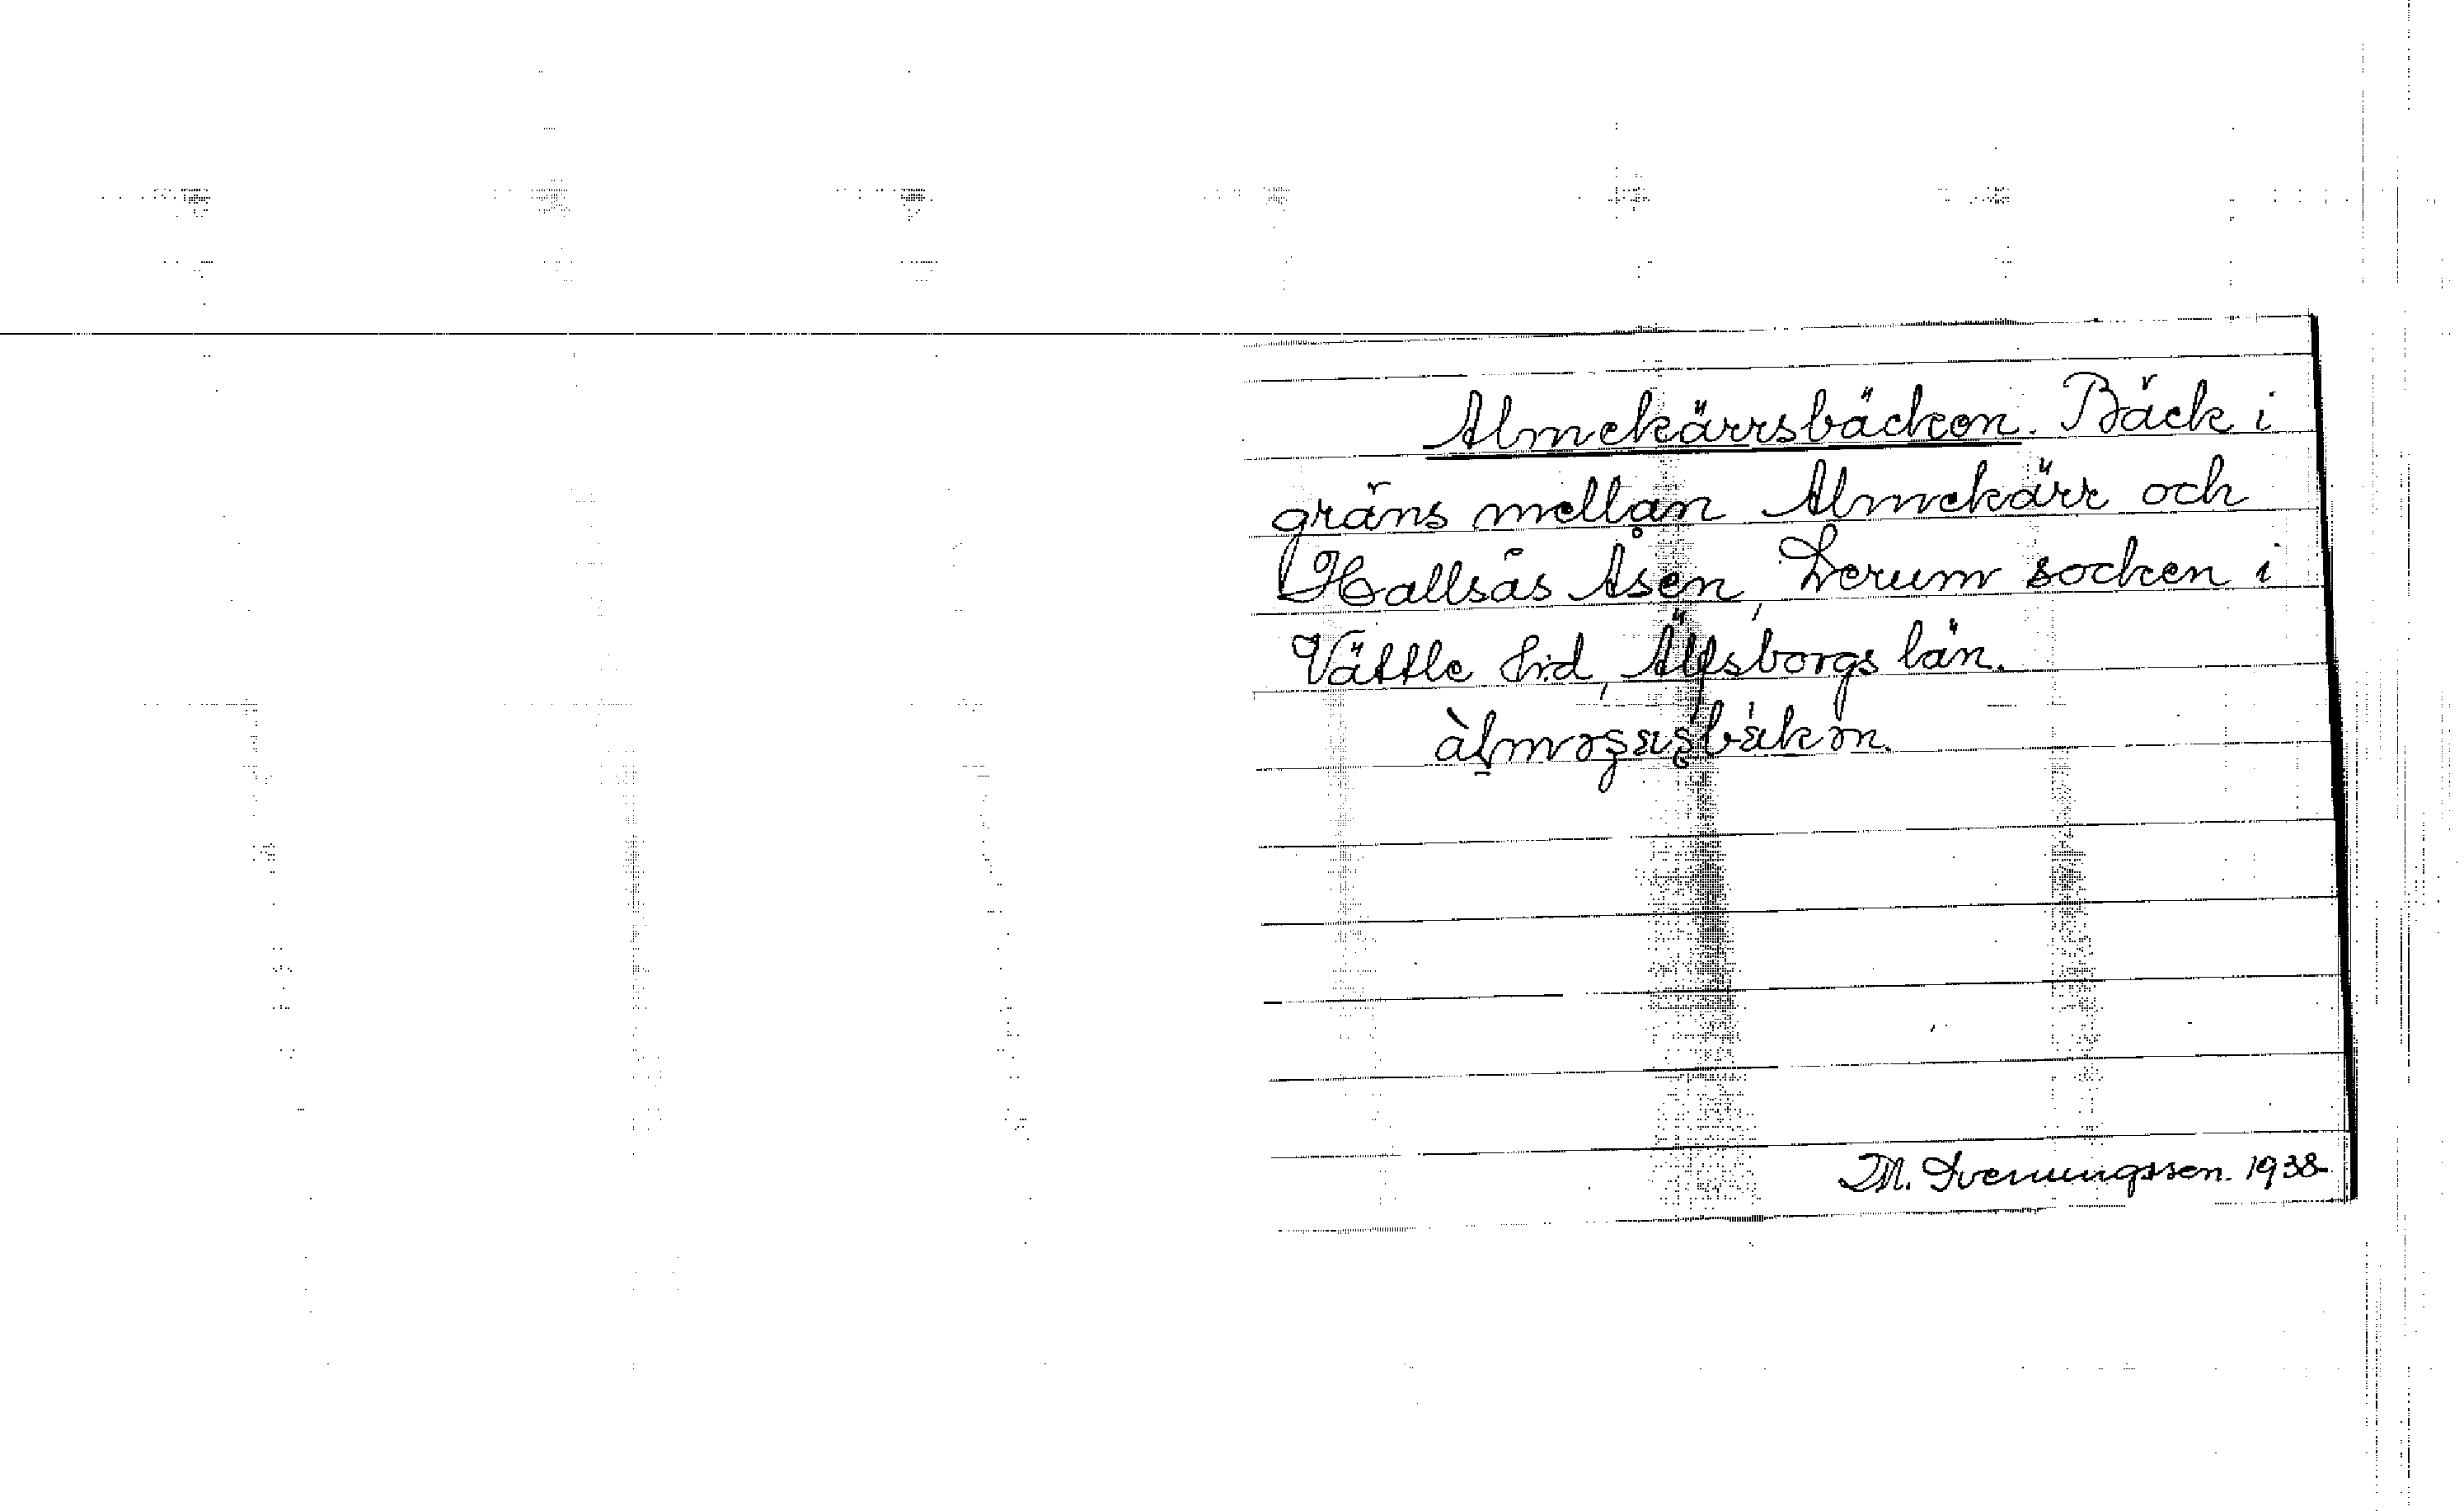 Almekärrsbäcken. Bäck i
gräns mellan Almekärr och
Hallsås Åsen, Lerum socken i
Vättle hd, Älfsborgs län.
M. Svenungsson. 1938